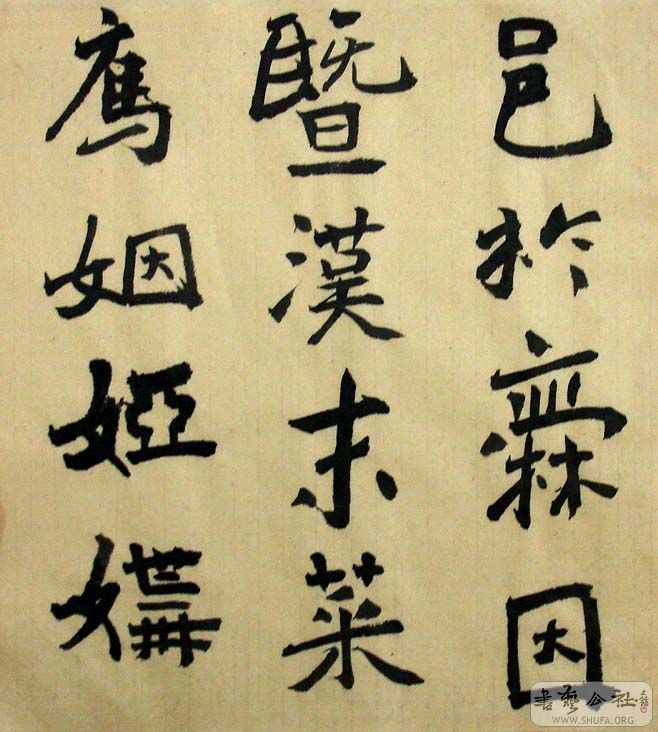 邑於爨因
暨漢末菜
焉姻婭媾
書藝公社
WWW.SHUFA.ORG